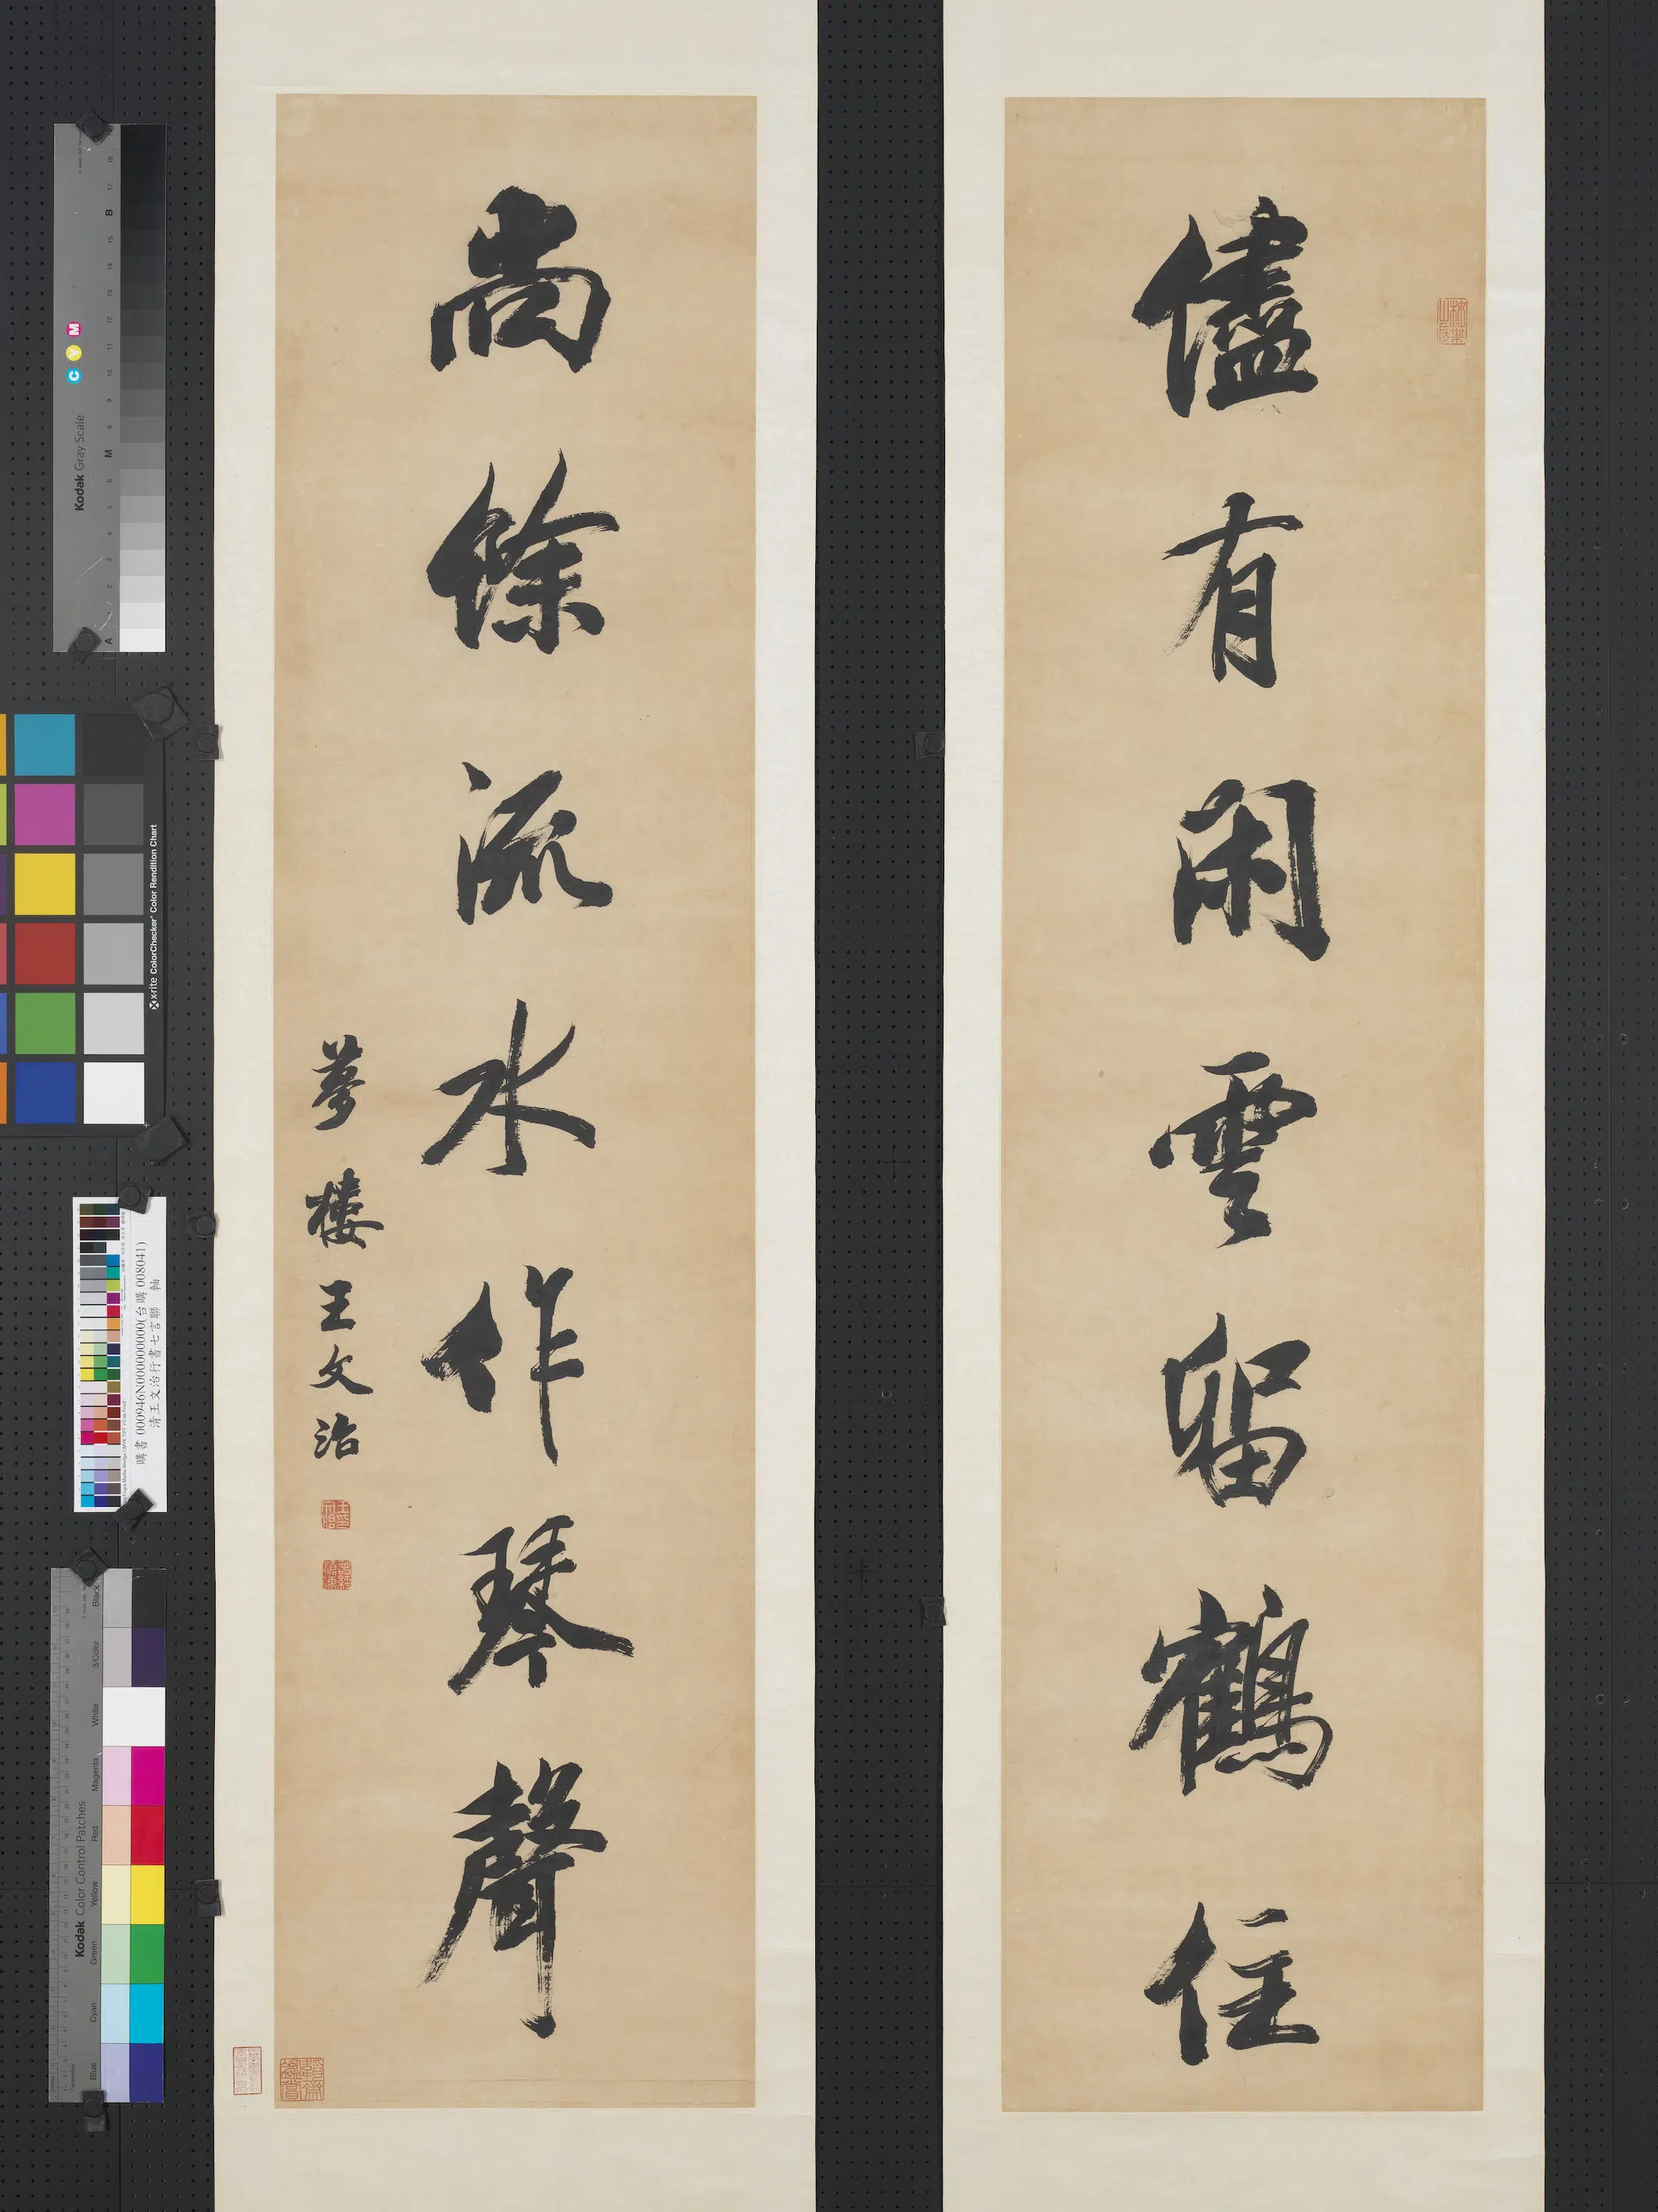 儘有閑雲留鶴住
尚餘流水作琴聲
夢樓王文治
Kodak Gray Scale
C Y M
A 1 2 3 4 5 6 M 8 9 10 11 12 13 14 15 B 17 18
x-rite ColorChecker Color Rendition Chart
購書 000946N000000000(台購 008041)
清王文治行書七言聯 軸
Kodak Color Control Patches
Blue Cyan Green Yellow Red Magenta White 3/Color Black